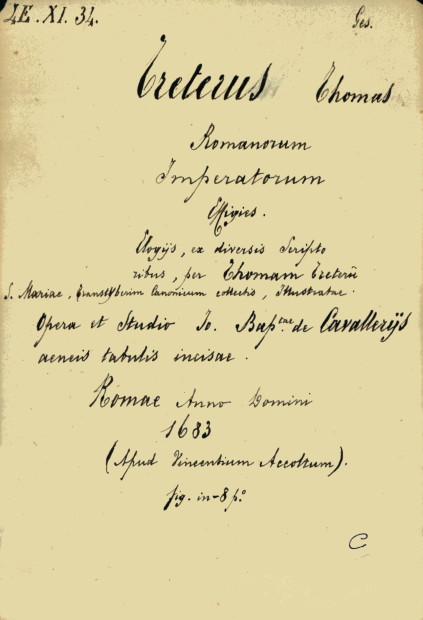 4E. XI. 34. Ges.
Treterus Thomas
Romanorum
Imperatorum
Effigies.
Elogijs, ex diversis Scripto
ribus, per Thomam Treterũ
S. Mariae, Transtyberim Canonicum collectis, Illustratae.
Opera et Studio Jo. Bap.tae de Cavallerijs
aeneis tabulis incisae.
Romae Anno Domini
1683
(Apud Vincentium Accoltum).
fig. in-8p.º
C